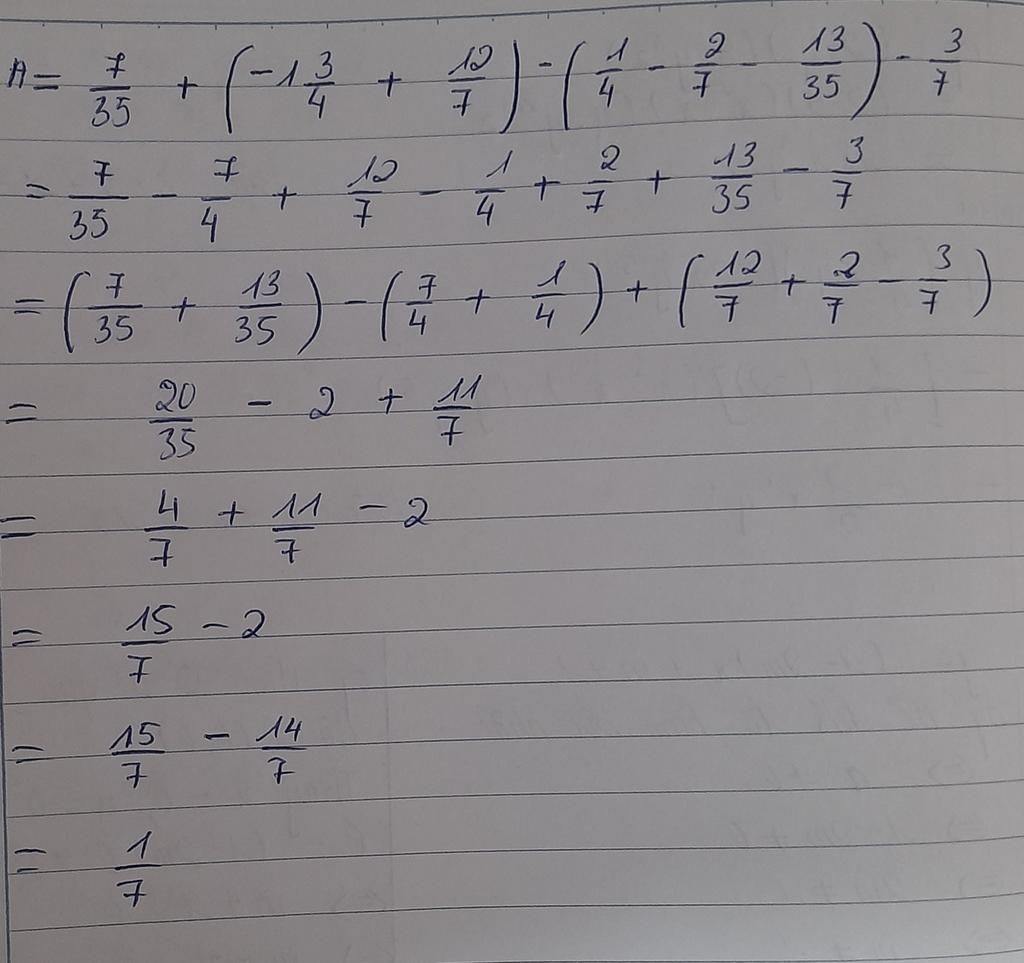 A = 7/35 + (-1 3/4 + 12/7) - (1/4 - 2/7 - 13/35) - 3/7
= 7/35 - 7/4 + 12/7 - 1/4 + 2/7 + 13/35 - 3/7
= (7/35 + 13/35) - (7/4 + 1/4) + (12/7 + 2/7 - 3/7)
= 20/35 - 2 + 11/7
= 4/7 + 11/7 - 2
= 15/7 - 2
= 15/7 - 14/7
= 1/7